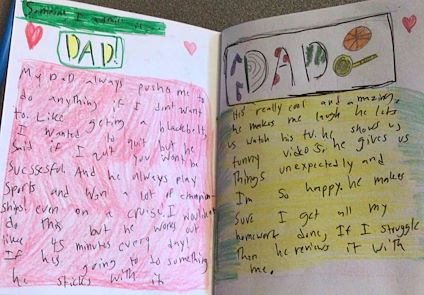 Someone I admire is
DAD!
My Dad always pushe me to
do anything if I dont want
to. Like geting a blackbelt,
I wanted to quit but he
said if I quit you wont be
successful. And he always play
Sports and won a lot of champion-
ships. even on a cruise. I would not
do this but he works out
like 45 minutes every day!
If hes going to do something
he sticks with it
DAD
He's really cool and amazing.
he makes me laugh he lets
us watch his tv. he shows us
funny videos. he gives us
Things unexpectedly and
I'm so happy. he makes
Sure I get all my
homework done, If I struggle
Then he reviews it with
me.